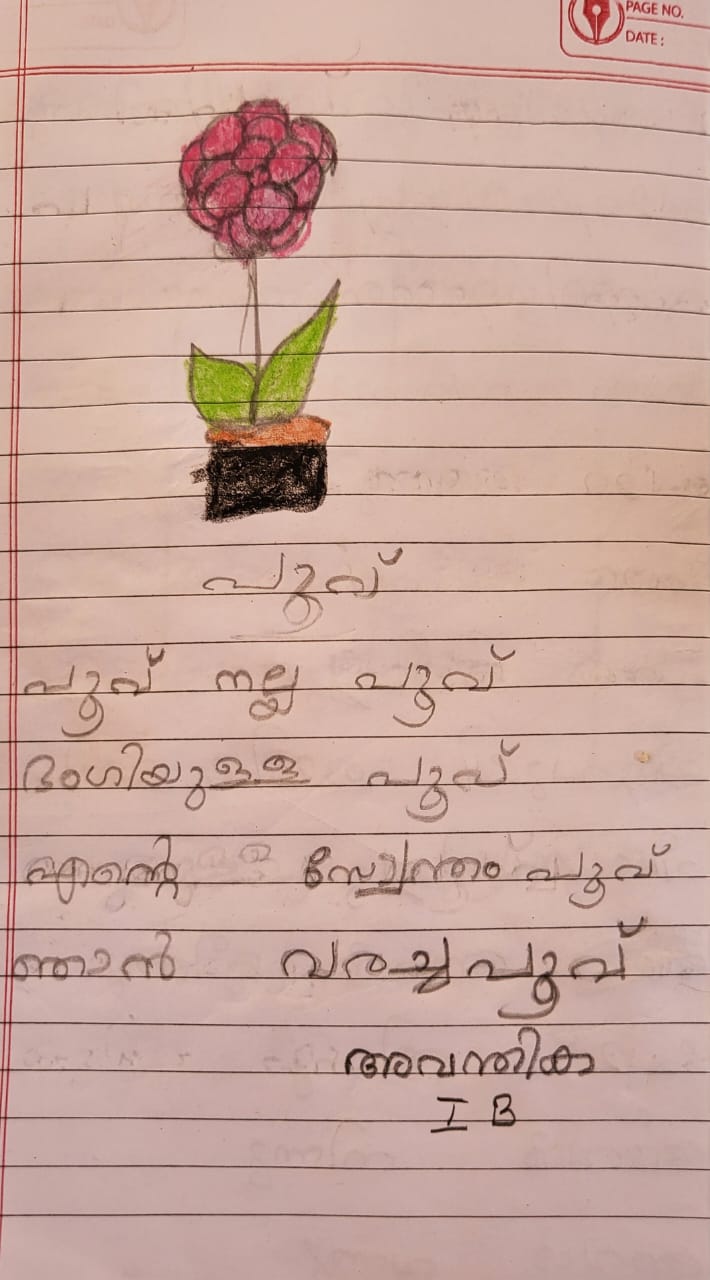 PAGE NO.
DATE:
പൂവ്
പൂവ് നല്ല പൂവ്
ഭംഗിയുള്ള പൂവ്
എന്റെ സ്വന്തം പൂവ്
ഞാൻ വരച്ച പൂവ്
അവന്തിക
I B